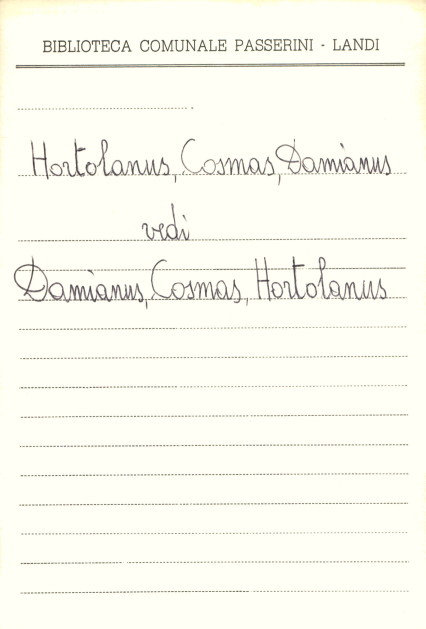 BIBLIOTECA COMUNALE PASSERINI - LANDI
Hortolanus, Cosmas, Damianus
vedi
Damianus, Cosmas, Hortolanus